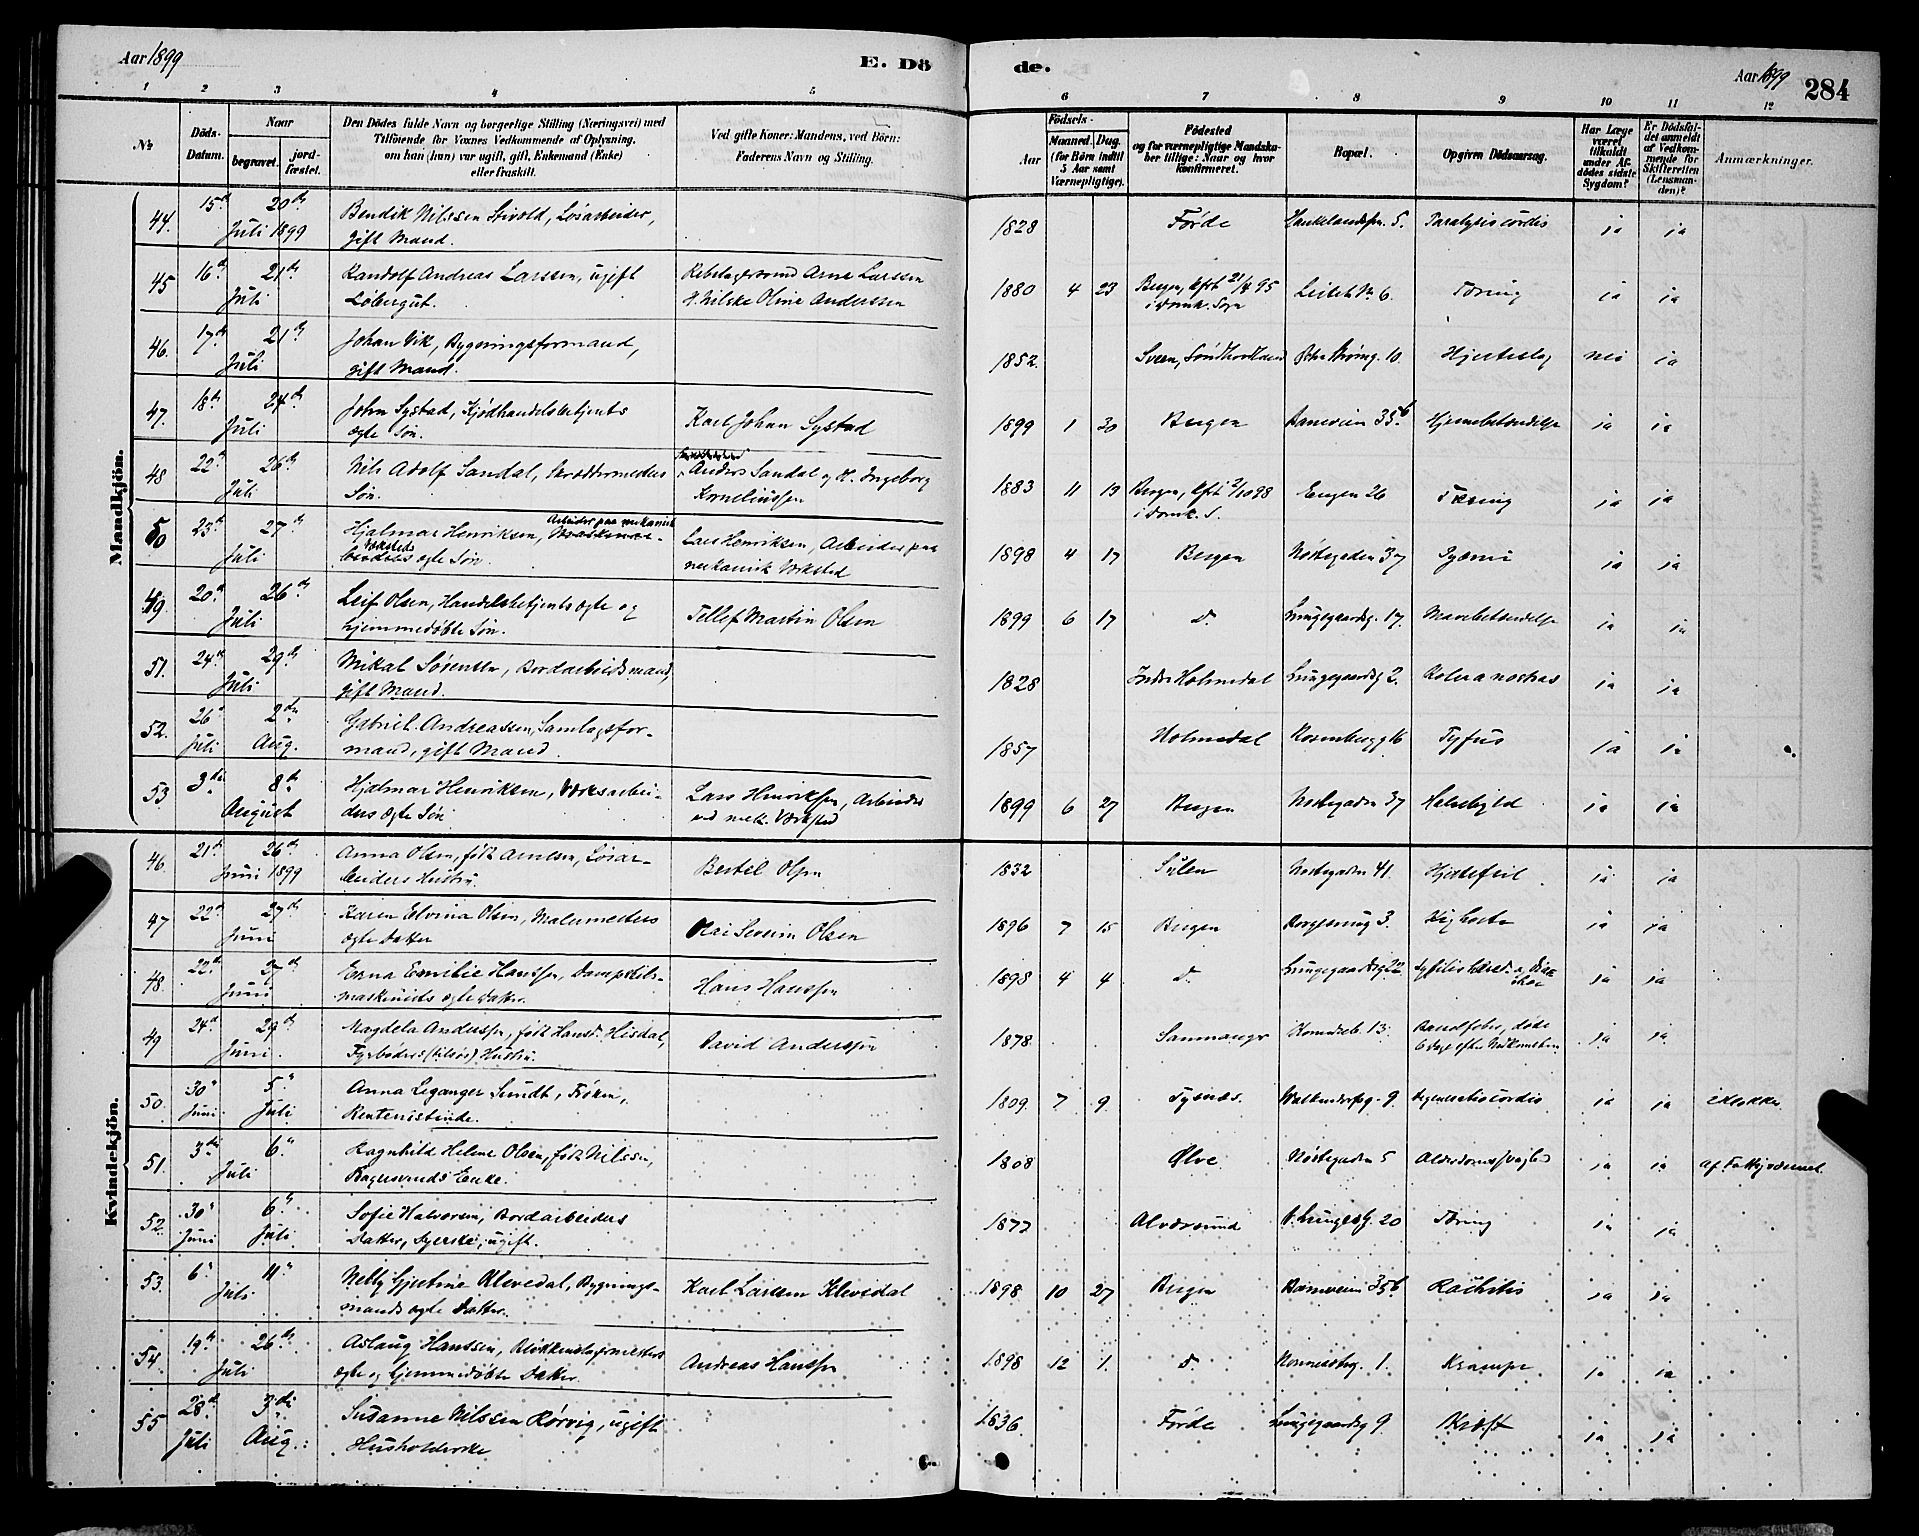 Aar 1899
E. Dö
de.
Aar 1899
284
1 2 3 4 5 6 7 8 9 10 11 12
No.
Döds-Datum.
Naar
begravet.
jord-fæstet.
Den Dödes fulde Navn og borgerlige Stilling (Næringsvei) med
Tilföiende for Voxnes Vedkommende af Oplysning,
om han (hun) var ugift, gift, Enkemand (Enke)
eller fraskilt.
Ved gifte Koner: Mandens, ved Börn:
Faderens Navn og Stilling.
Födsels-
Aar
Maaned. Dag.
(for Börn indtil
5 Aar samt
Værnepligtige).
Födested
og for værnepligtige Mandska-
ber tillige: Naar og hvor
konfirmeret.
Bopæl.
Opgiven Dödsaarsag.
Har Læge
været
tilkaldt
under Af-
dödes sidste
Sygdom?
Er Dödsfal-
det anmeldt
af Vedkom-
mende for
Skifteretten
(Lensman-
den)?
Anmærkninger.
Mandkjön.
44. 15de 20de Bendik Nilssen Løsarbeider, 1828 Førde 5. Paralysis cordis ja ja
Juli 1899 gift Mand.
45 16de 21de Randolf Andreas Larssen, ugift Arne Larssen 1880 4 23 Bergen, kft 21/4 95 Leitet No 6. Tæring ja ja
Juli Løbergut. Oline Anderssen i Domk. Sogn
46. 17de 21de Johan Vik, Bygningsformand, 1852. Sveen, Søndhordland 10 Hjerteslag nei ja
Juli gift Mand.
47. 18de 24de John Systad, Kjødhandelsbetjents Karl Johan Systad 1899 1 30 Bergen Baneveien 35b. Hjernebetændelse ja ja
Juli ægte Søn.
48 22de 26de Nils Adolf Sandal, Skræddermesters Anders Sandal og H. Ingeborg 1883 11 19 Bergen, kft 2/10 98 Engen 26 Tæring ja ja
Juli Søn. Korneliussen i Domk. S.
50 23de 27de Hjalmar Henriksen, Arbeider paa mekanisk Lars Henriksen, Arbeider paa 1898 4 17 Bergen Nøstegaden 37 ja ja
Juli Værksteds ægte Søn. mekanisk Værksted
49. 20de 26de Leif Olsen, Handelsbetjents ægte og Tellef Martin Olsen 1899 6 17 do. Lungegaardsg. 17. Mavebetændelse ja ja
Juli hjemmedøbte Søn.
51. 24de 29de Mikal Sørensen, Bordarbeidsmand, 1828 Indre Holmedal Lungegaardsg 2. Kolera nostras ja ja
Juli gift Mand.
52. 26de 2den Gabriel Andreassen, Samlagsfor- 1857 Holmedal Rosenbergg 16 Tyfus ja ja
Juli Aug. mand, gift Mand.
53 3die 8de Hjalmar Henriksen, Værksarbei- Lars Henriksen, Arbeider 1899 6 27 Bergen Nøstegaden 37 Halsbyld ja ja
August ders ægte Søn ved mek. Værksted
Kvindekjön.
46. 21de 26de Anna Olsen, født Arnesen, Løsar- Bertel Olsen 1832 Sulen Nøstegaden 41. Hjertefeil ja ja
Juni 1899 beiders Hustru.
47 22de 27de Karen Elvina Olsen, Malermesters Olai Severin Olsen 1896 7 15 Bergen 3. Kighoste ja ja
Juni ægte Datter
48. 22de 27de Erna Emilie Hanssen, Dampskibs- Hans Hanssen 1898 4 4 do. Lungegaardsg 22 ja ja
Juni maskinists ægte Datter.
49 24de 29de Magdela Anderssen, født Hansd. Hisdal, David Anderssen 1878. Samnanger 13. Barselfeber, døde ja ja
Juni. Fyrbøders (tilsøs) Hustru. 6 Dage efter Nedkomsten
50. 30te 5te Anna Leganger Sundt, Frøken, 1809. 7 9 Tysnes. 9. degeneratio cordis ja ja i Klokke
Juni Juli Rentenistinde.
51. 3die 6te Ragnhild Helene Olsen, født Nilssen, 1808 Ølve Nøstegaden 5 Alderdomssvaghed ja ja af Fattigvæsenet
Juli Bagersvends Enke.
52. 30te 6te Sofie Halvorsen, Bordarbeiders 1877 Alversund 20 Tæring ja ja
Juni Juli Datter, Syerske, ugift.
53. 6te 11te Nelly Gjertine Klevedal, Bygnings- Karl Larssen Klevedal 1898 10 27 Bergen Baneveien 35b Rachitis ja ja
Juli mands ægte Datter.
54. 19de 26de Aslaug Hanssen, Blikkenslagermesters Andreas Hanssen 1898 12 1 do. 1. Krampe ja ja
Juli ægte og hjemmedøbte Datter.
55 28de 3die Susanne Nilssen Rørvig, ugift 1836 Førde Lungegaardsg 9 Kræft ja ja
Juli Aug. Husholderske